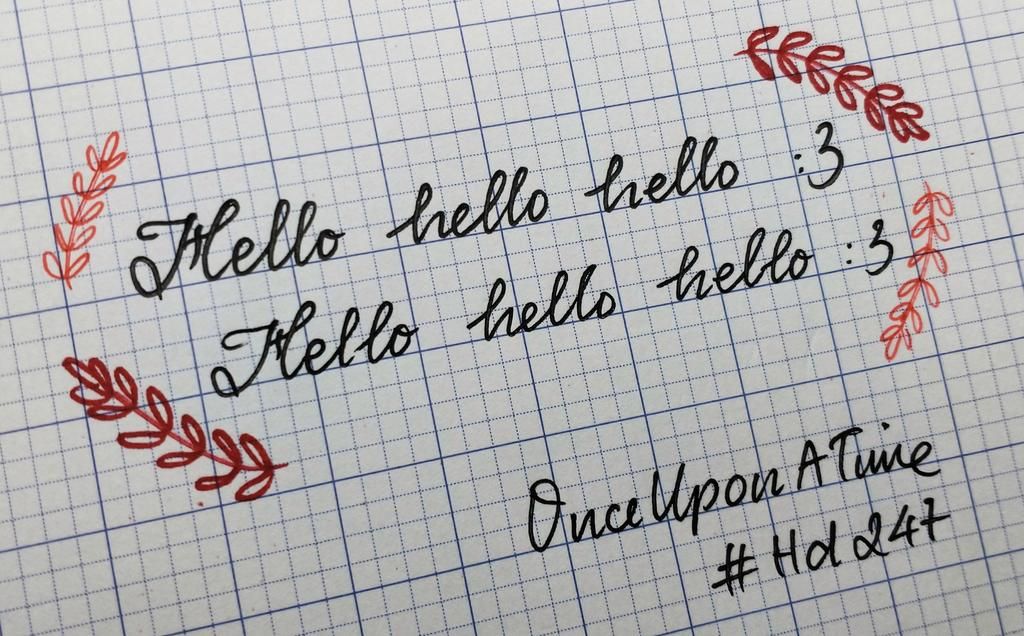 Hello hello hello :3
Hello hello hello :3
OnceUponATime
#Hd247